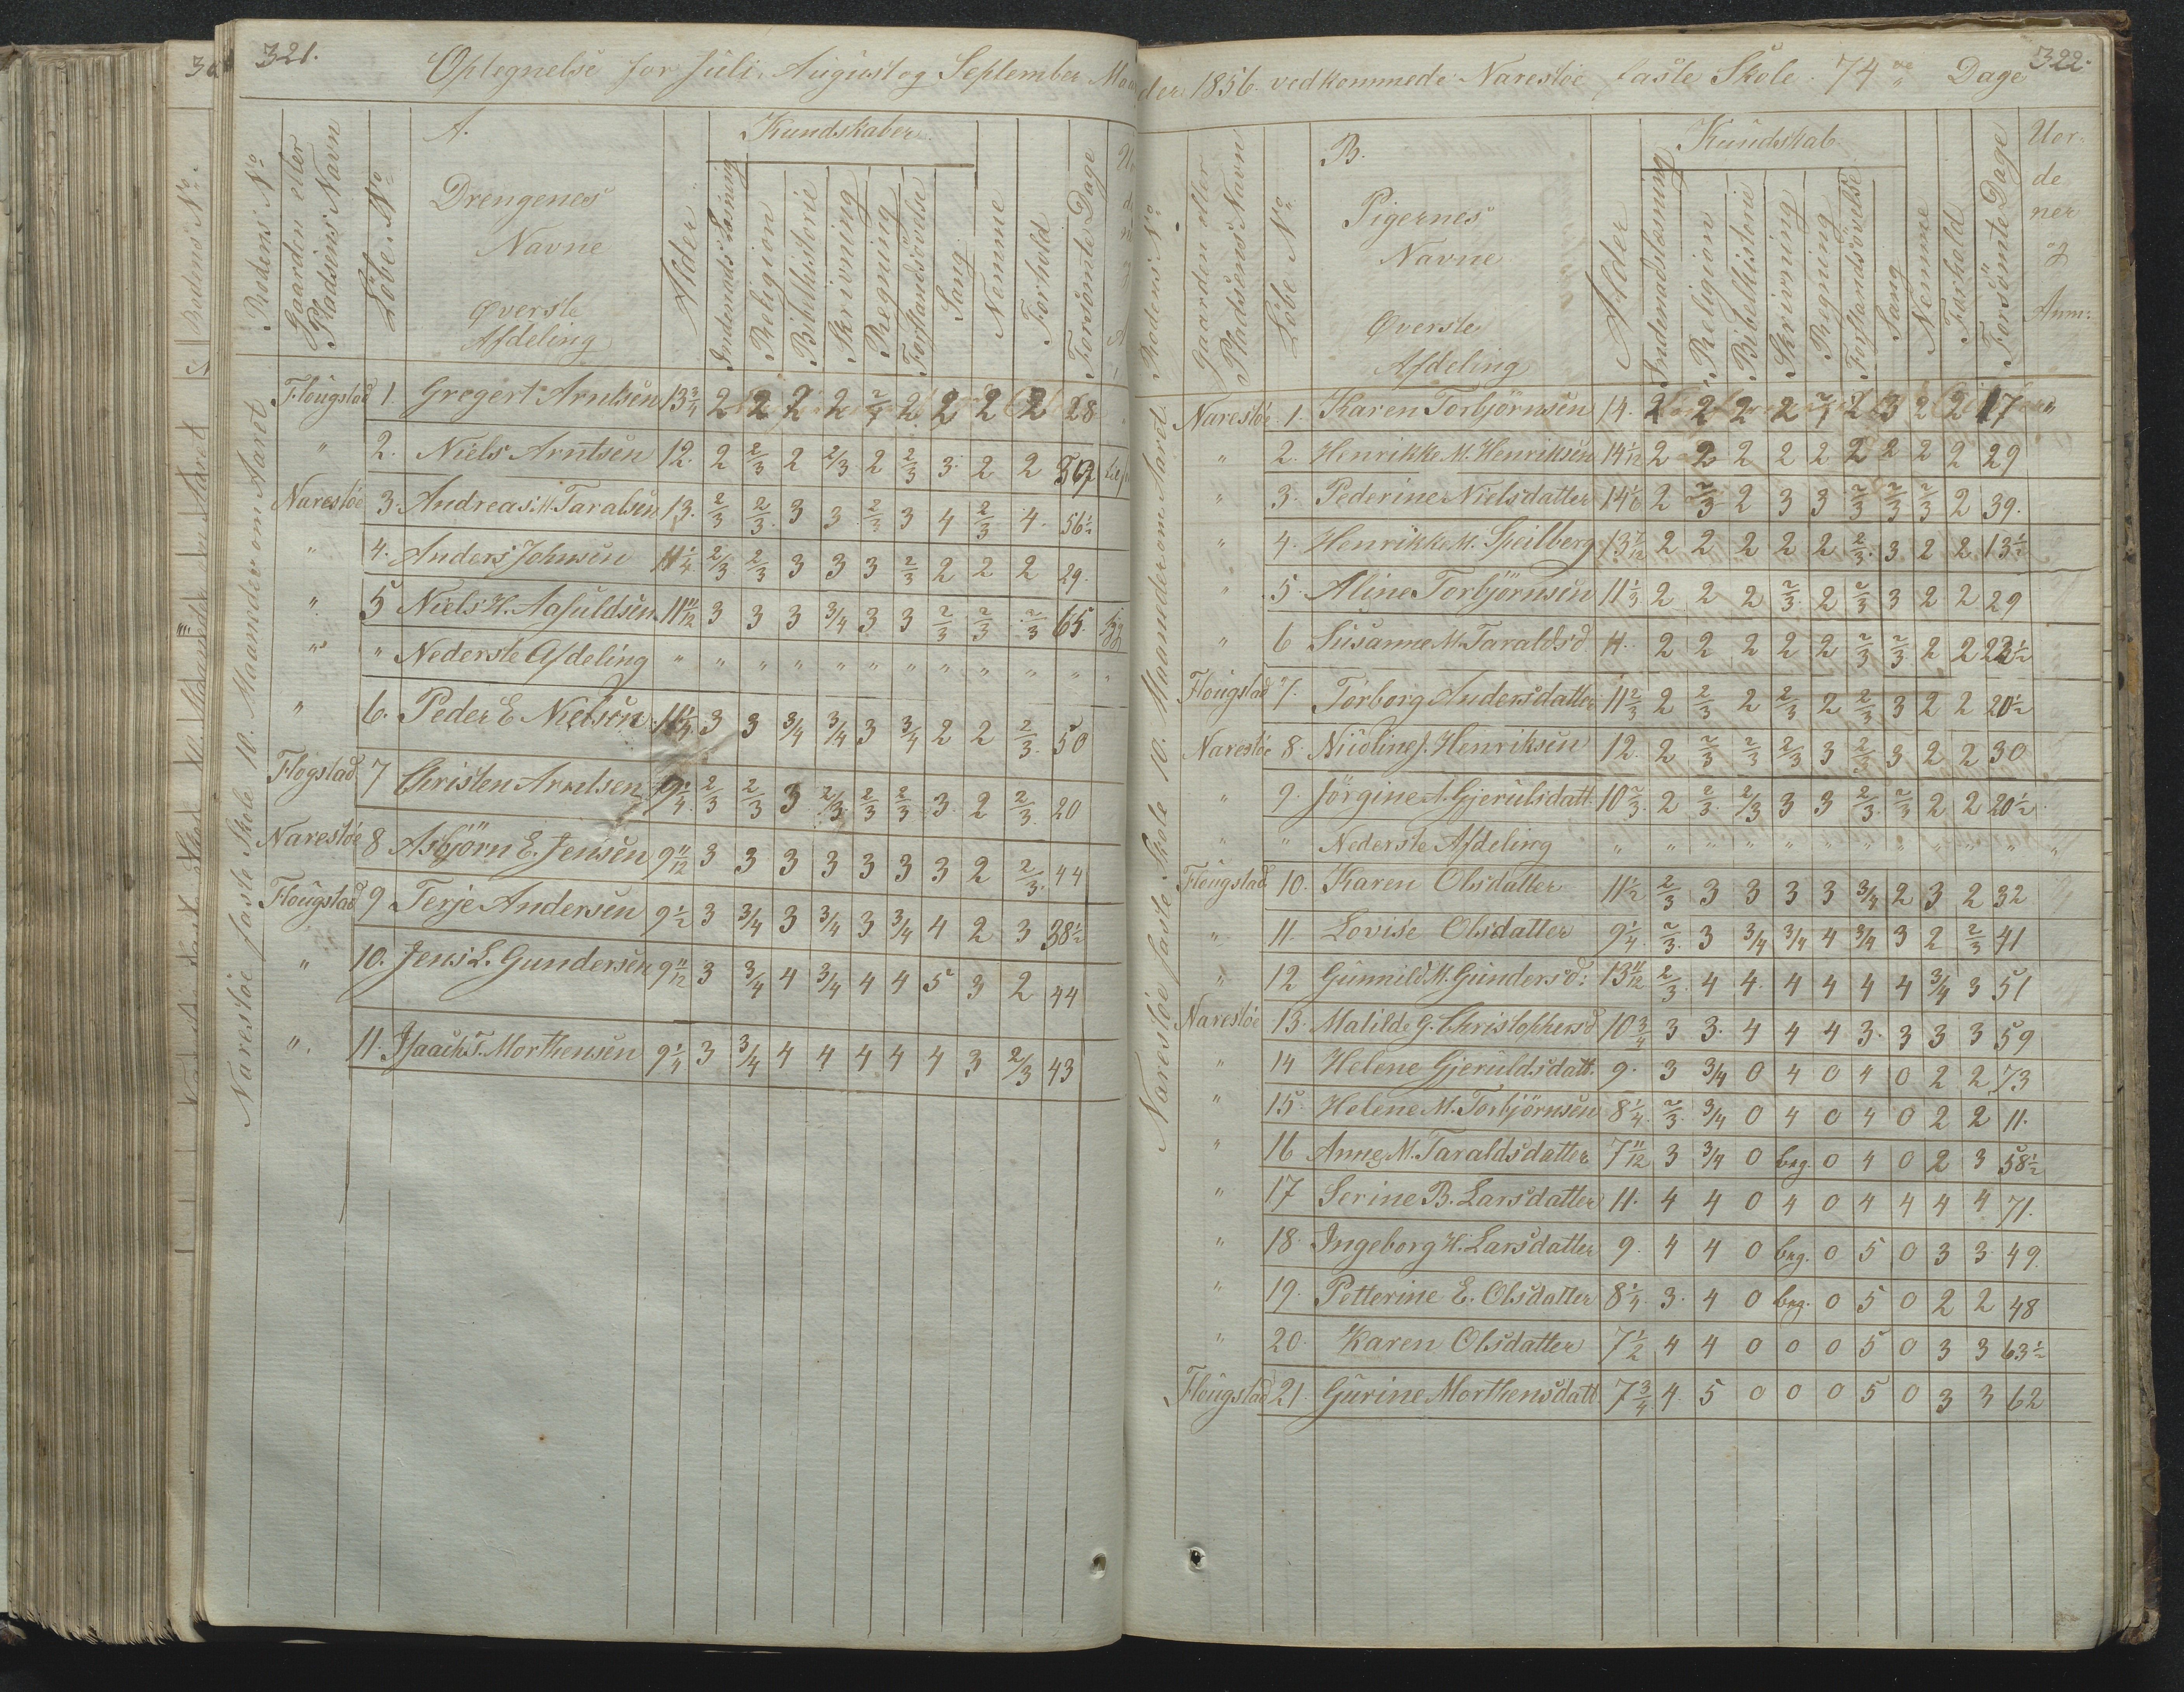 321.
Optegnelse for Juli, August og September Maa
Rodens No
Gaarden eller Pladsens Navn
Löbe No
A.
Drengenes
Navne
Øverste
Afdeling
Alder
Kundskaber
Indenads Læsning
Religion
Bibelhistorie
Skrivning
Regning
Forstandsövelse
Sang
Nemme
Forhold
Forsömte Dage
Narestöe faste Skole 10. Maaneder om Aaret
Flougstad 1. Gregert Arntsen 13 3/4 2 2 2 2 2/4 2 2 2 2 28
" 2. Niels Arntsen 12. 2 2/3 2 2/3 2 2/3 3 2 2
Narestöe 3. Andreas M. Taralsen 13. 2/3 2/3 3 3 2/3 3 4 2/3 4. 56 1/2
" 4. Anders Johnsen 11 1/4 2/3 2/3 3 3 3 2/3 2 2 2 29.
" 5 Niels H. Aasuldsen 11 11/12 3 3 3 3/4 3 3 2/3 2/3 2/3 65.
" " Nederste Afdeling " " " " " " " " " " "
" 6. Peder E Nielsen 11 1/4 3 3 3/4 3/4 3 3/4 2 2 2/3 50
Flogstad 7 Christen Arntsen 9 1/4 2/3 2/3 3 2/3 2/3 2/3 3 2 2/3 20
Narestöe 8 Asbjörn E. Jensen 9 11/12 3 3 3 3 3 3 3 2 2/3 44
Flougstad 9 Terje Andersen 9 1/2 3 3/4 3 3/4 3 3/4 4 2 3 38 1/2
" 10. Jens L. Gundersen 9 11/12 3 3/4 4 3/4 4 4 5 3 2 44
" 11. Isaach T. Morthensen 9 1/4 3 3/4 4 4 4 4 4 3 2/3 43
322.
der 1856. vedkommede Narestöe faste Skole 74 Dage
Rodens No
Gaarden eller Pladsens Navn
Löbe No
B.
Pigernes
Navne
Øverste
Afdeling
Alder
Kundskab
Indenadslæsning
Religion
Bibelhistorie
Skrivning
Regning
Forstandsövelse
Sang
Nemme
Forhold
Forsömte Dage
Uor-
de
ner
og
Anm:
Narestöe faste Skole 10. Maaneder om Aaret
Narestöe 1. Karen Torbjörnsen 14. 2 2 2 2 2/4 2 3 2 2 17 "
" 2. Henrikke M. Henriksen 14 1/12 2 2 2 2 2 2 2 2 2 29
" 3. Pederine Nielsdatter 14 1/6 2 2/3 2 3 3 2/3 2/3 2/3 2 39.
" 4. Henrikke M. Speilberg 13 1/12 2 2 2 2 2 2/3 3 2 2 13 1/2
" 5. Aline Torbjörnsen 11 1/3 2 2 2 2/3 2 2/3 3 2 2 29
" 6 Susanne M. Taraldsd. 11. 2 2 2 2 2 2/3 2/3 2 2 22 1/2
Flougstad 7. Torborg Andersdatter 11 2/3 2 2/3 2 2/3 2 2/3 3 2 2 20 1/2
Narestöe 8. Nicoline J. Henriksen 12. 2 2/3 2/3 2/3 3 2/3 3 2 2 30
" 9. Jörgine A. Gjerulsdatt. 10 2/3 2 2/3 2/3 3 3 2/3 2/3 2 2 20 1/2
" " Nederste Afdeling " " " " " " " " " " "
Flougstad 10. Karen Olsdatter 11 1/2 2/3 3 3 3 3 3/4 2 3 2 32
" 11. Lovise Olsdatter 9 1/4 2/3 3 3/4 3/4 4 3/4 3 2 2/3 41
" 12 Gunnild M. Gundersd: 13 11/12 2/3 4 4 4 4 4 4 3/4 3 51
Narestöe 13. Matilde G. Christophersd. 10 3/4 3 3. 4 4 4 3. 3 3 3 59
" 14 Helene Gjeruldsdatt. 9. 3 3/4 0 4 0 4 0 2 2 73
" 15. Helene M. Torbjörnsen 8 1/4 2/3 3/4 0 4 0 4 0 2 2 11.
" 16 Anne M. Taraldsdatter 7 11/12 3 3/4 0 beg. 0 4 0 2 3 58 1/2
" 17 Serine B. Larsdatter 11. 4 4 0 4 0 4 4 4 4 71.
" 18. Ingeborg H. Larsdatter 9. 4 4 0 beg. 0 5 0 3 3 49.
" 19. Petterine E. Olsdatter 8 1/4 3. 4 0 beg. 0 5 0 2 2 48
" 20. Karen Olsdatter 7 1/2 4 4 0 0 0 5 0 3 3 63 1/2
Flougstad 21. Gurine Morthensdatt. 7 3/4 4. 5 0 0 0 5 0 3 3 62